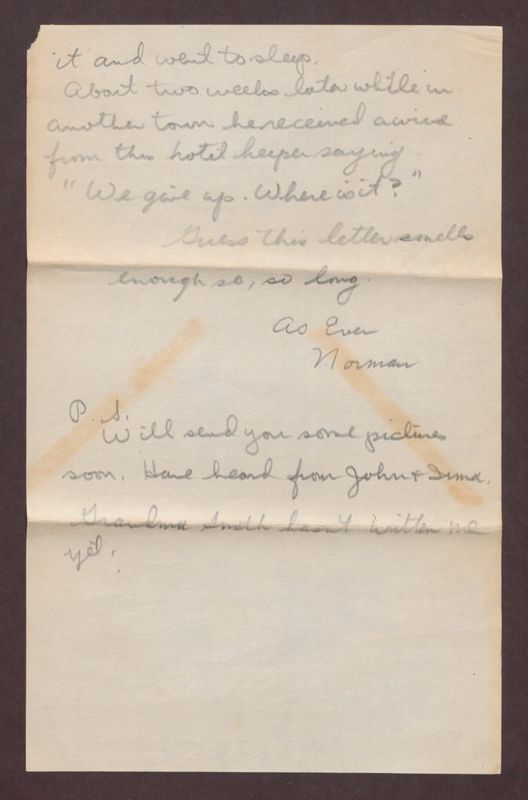 it and went to sleep.
About two weeks later while in
another town he received a wire
from this hotel keeper saying
"We give up. Where is it?"
Guess this letter smells
enough so, so long.
As Ever
Norman
P. S.
Will send you some pictures
soon. Have heard from John + Irma.
Grandma Smith hasn't written me
yet.